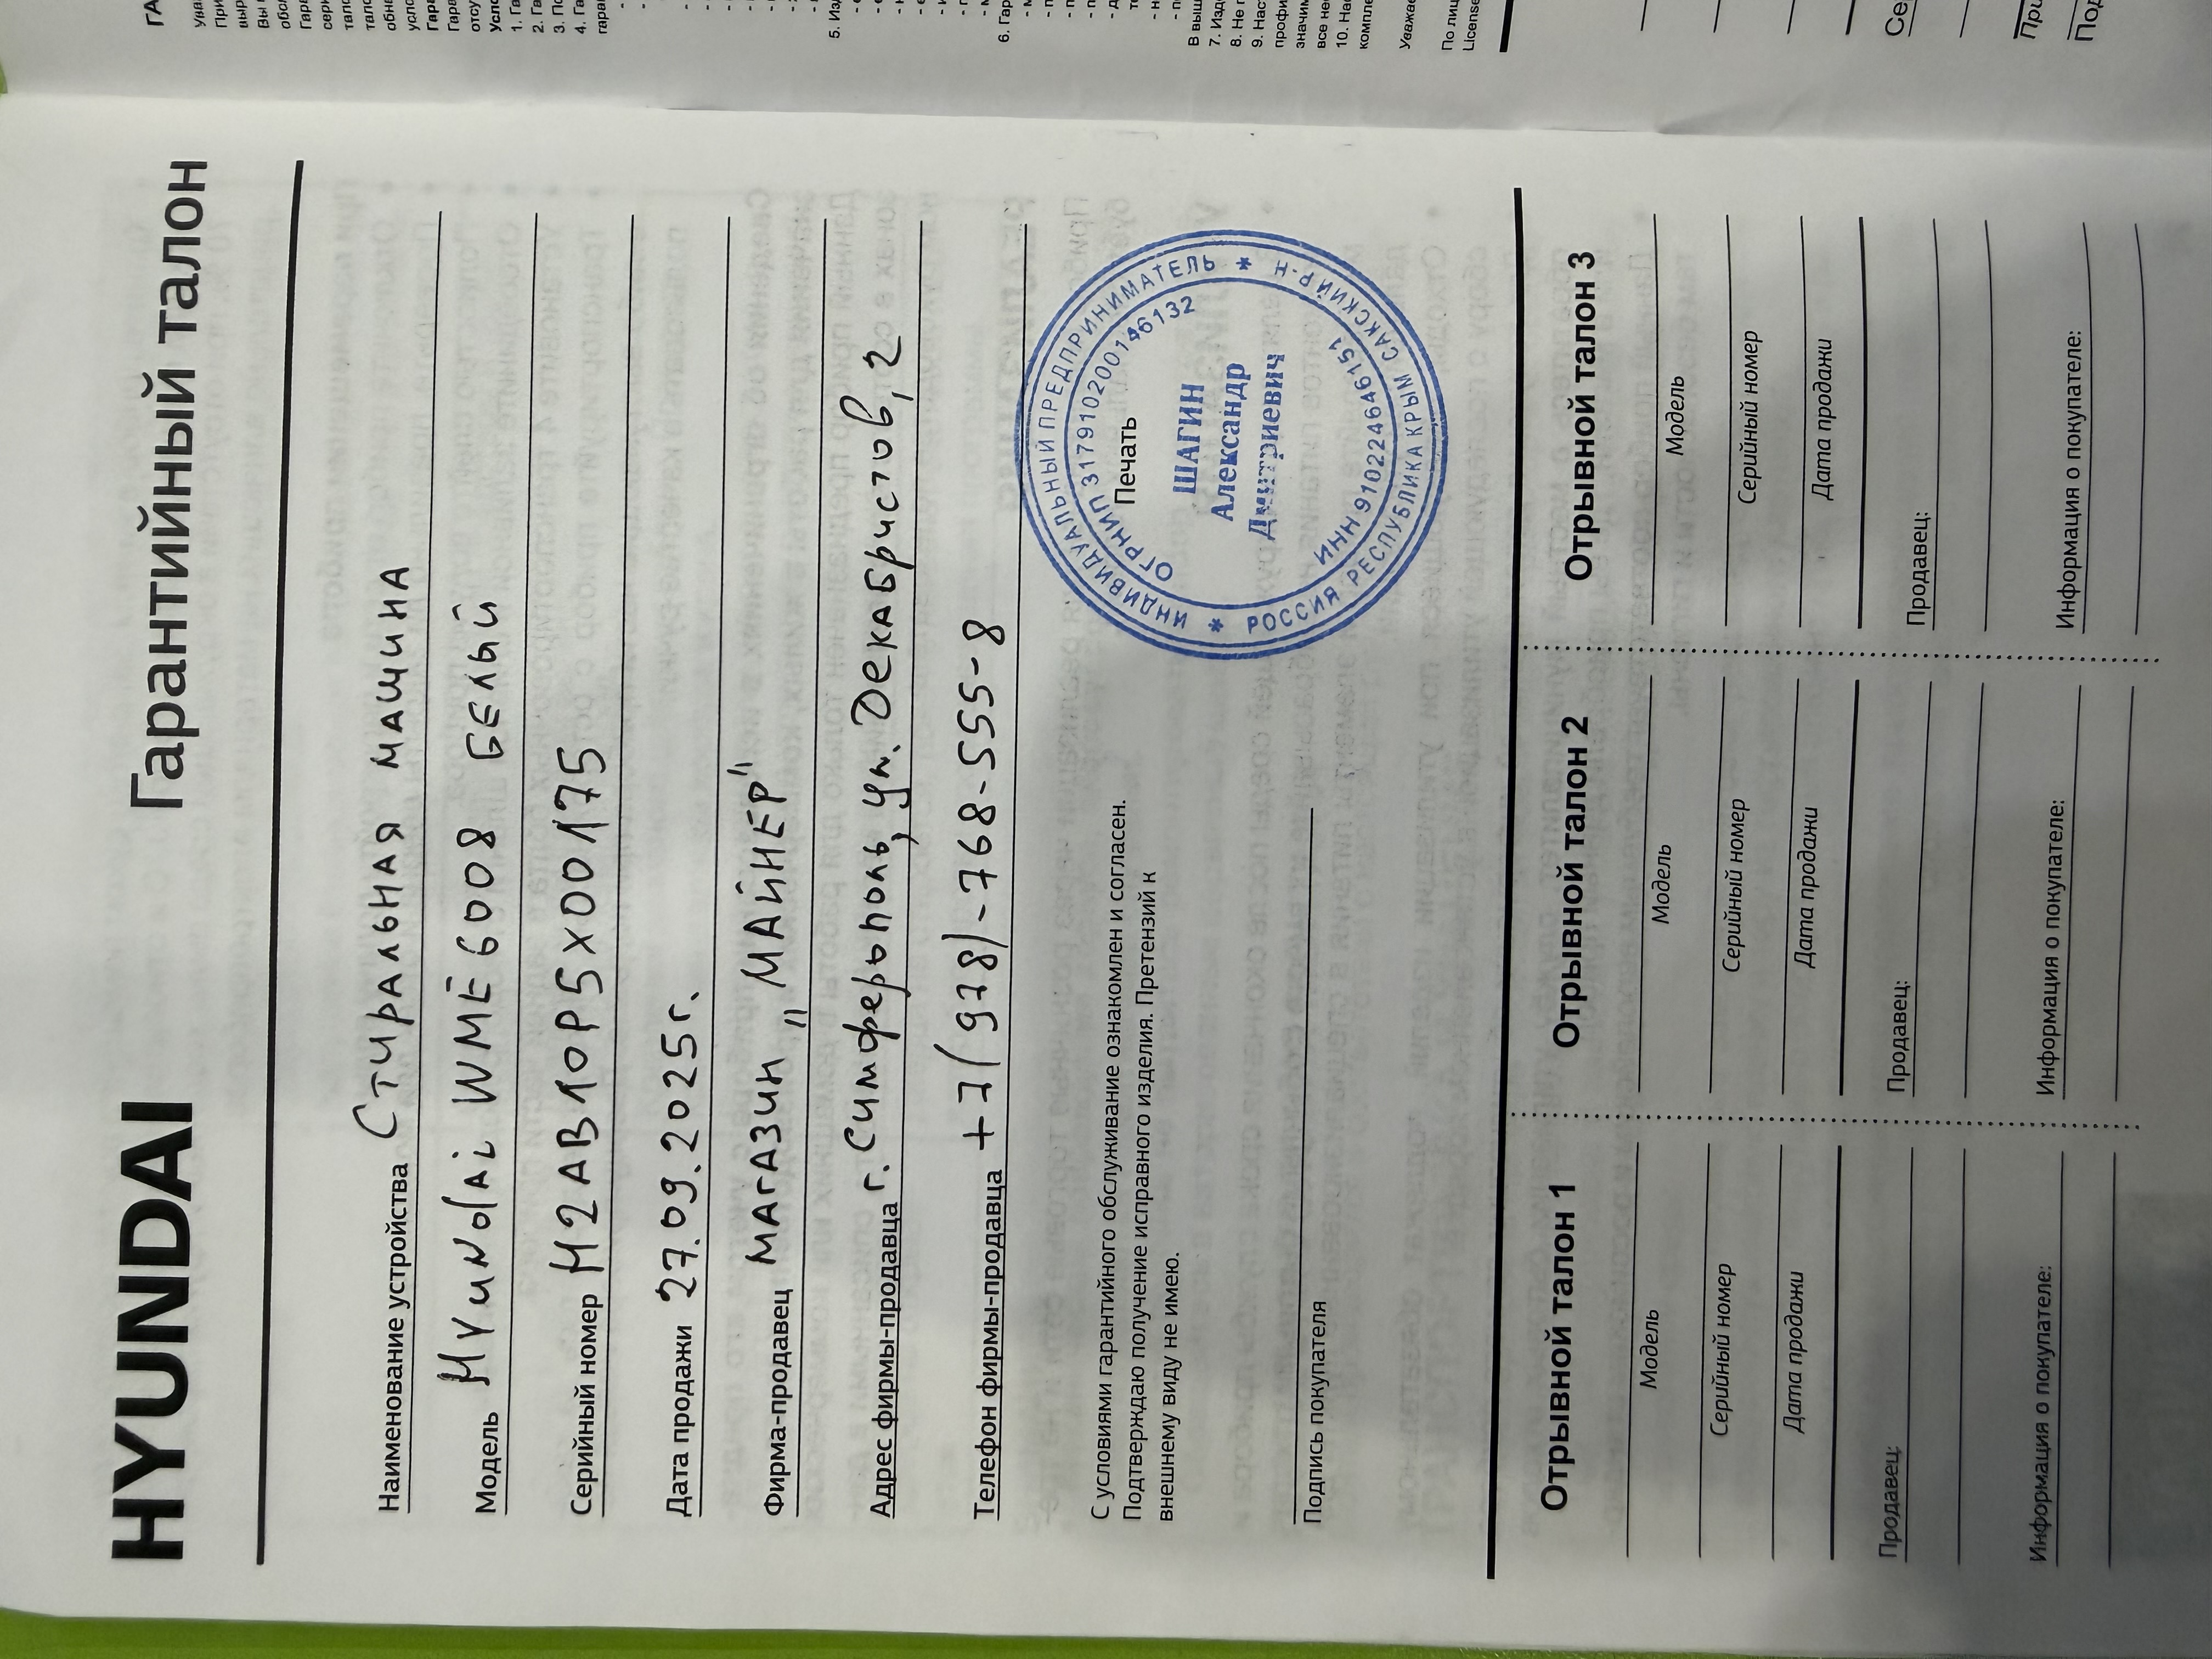 HYUNDAI Гарантийный талон
Наименование устройства Стиральная машина
Модель Hyundai WME6008 белый
Серийный номер H2AB10P5X00175
Дата продажи 27.09.2025г.
Фирма-продавец магазин "МАЙНЕР"
Адрес фирмы-продавца г. Симферополь, ул. Декабристов, 2
Телефон фирмы-продавца +7(978)-768-555-8
С условиями гарантийного обслуживание ознакомлен и согласен.
Подтверждаю получение исправного изделия. Претензий к
внешнему виду не имею.
Печать
ИНДИВИДУАЛЬНЫЙ ПРЕДПРИНИМАТЕЛЬ
ОГРНИП 317910200146132
ШАГИН
Александр
Дмитриевич
ИНН 910224646151
РОССИЯ РЕСПУБЛИКА КРЫМ САКСКИЙ Р-Н
Подпись покупателя
Отрывной талон 1 Отрывной талон 2 Отрывной талон 3
Модель Модель Модель
Серийный номер Серийный номер Серийный номер
Дата продажи Дата продажи Дата продажи
Продавец: Продавец: Продавец:
Информация о покупателе: Информация о покупателе: Информация о покупателе: